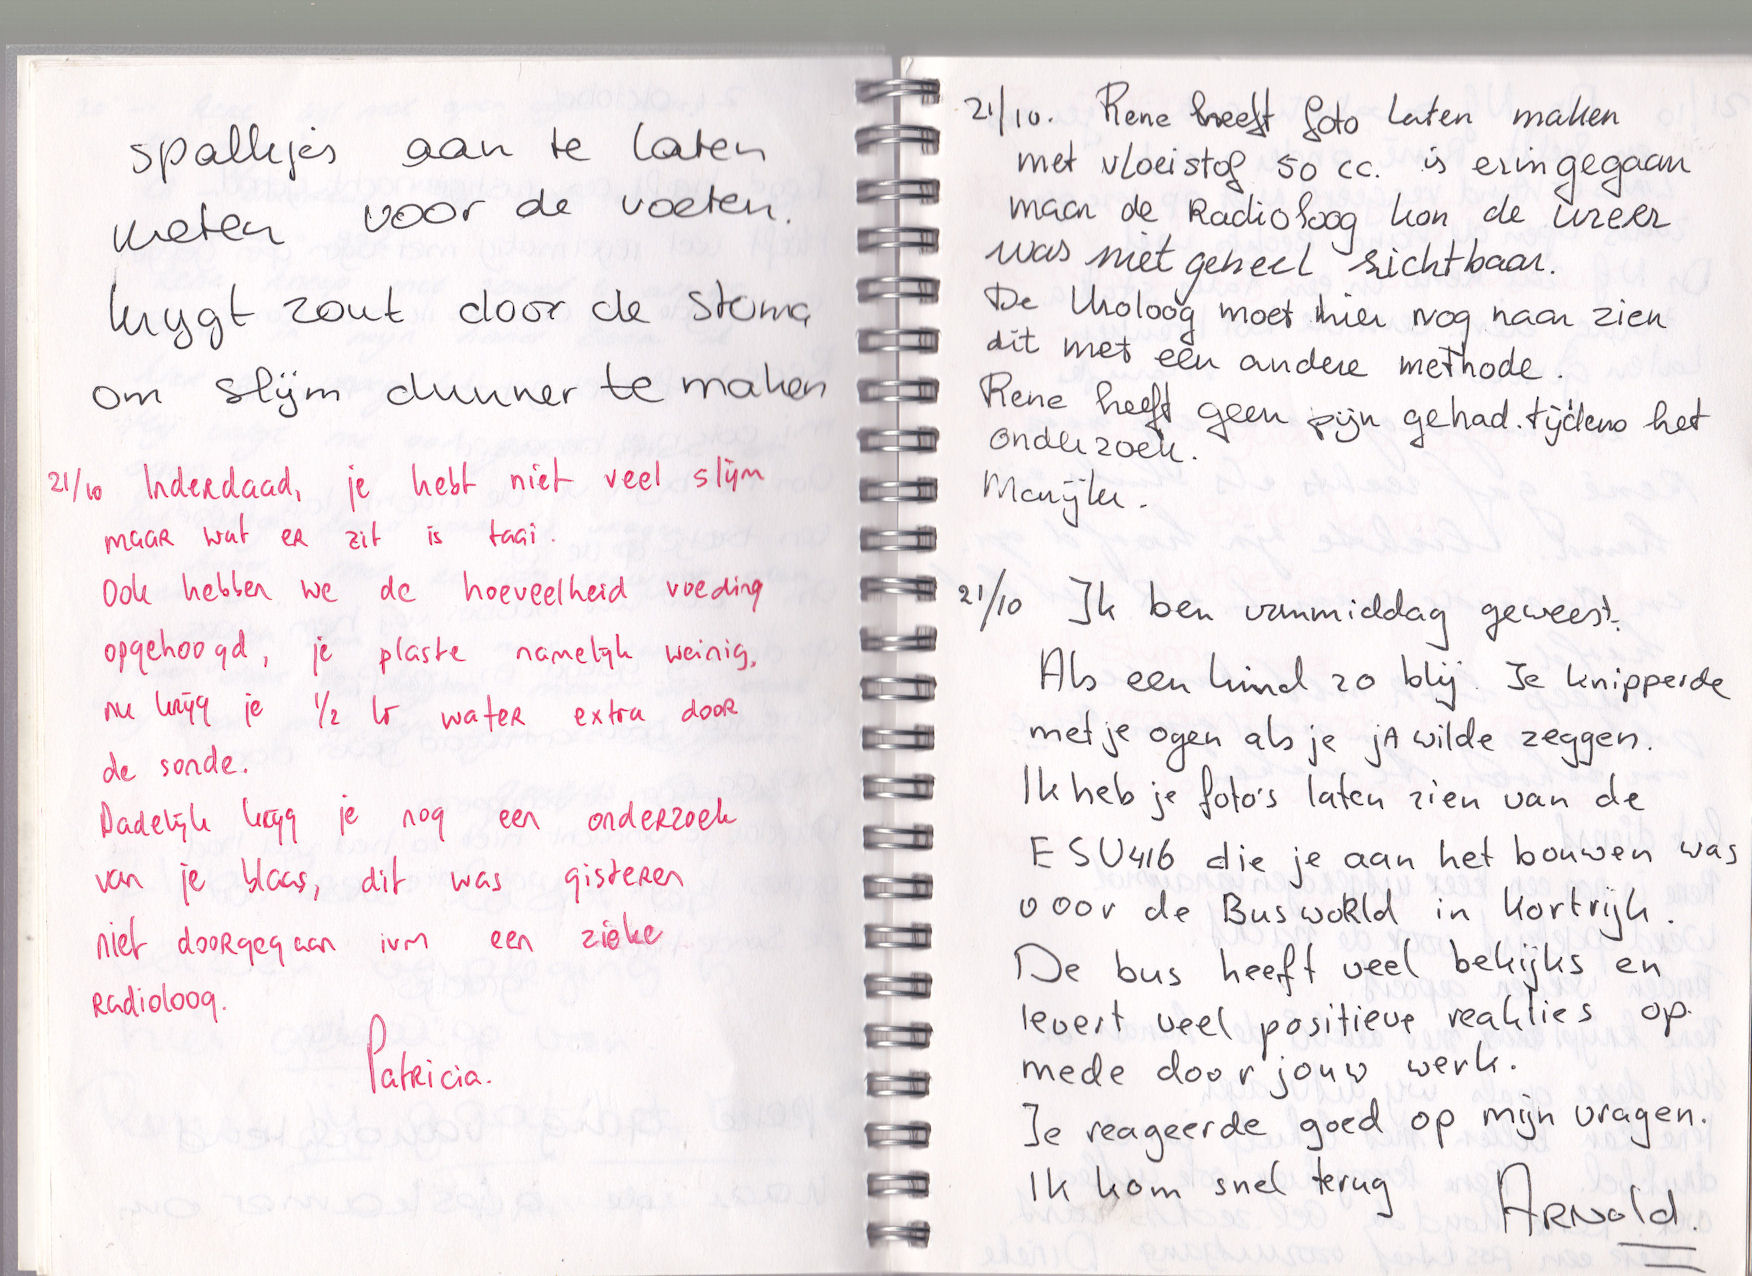 spalkjes aan te laten
meten voor de voeten.
krygt zout door de stoma
om slijm dunner te maken
21/10 Inderdaad, je hebt niet veel slijm
maar wat er zit is taai.
Ook hebben we de hoeveelheid voeding
opgehoogd, je plaste namelijk weinig,
nu krijg je 1/2 ltr water extra door
de sonde.
Dadelijk krijg je nog een onderzoek
van je blaas, dit was gisteren
niet doorgegaan ivm een zieke
Radioloog.
Patricia.
21/10. Rene heeft foto laten maken
met vloeistof 50 cc. is eringegaan
maar de Radioloog kon de
was niet geheel zichtbaar.
De Uroloog moet hier nog naar zien
dit met een andere methode.
Rene heeft geen pijn gehad. tijdens het
onderzoek.
Marijke.
21/10 Ik ben vanmiddag geweest.
Als een kind zo blij. Je knipperde
met je ogen als je jA wilde zeggen.
Ik heb je foto's laten zien van de
ESU416 die je aan het bouwen was
voor de Busworld in Kortrijk.
De bus heeft veel bekijks en
levert veel positieve reakties op.
mede door jouw werk.
Je reageerde goed op mijn vragen.
Ik kom snel terug
ARNold.